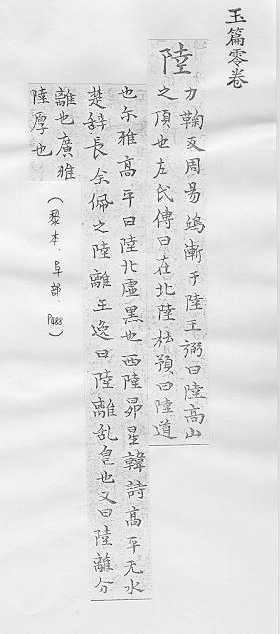 玉篇零卷
陸
力鞠反周易鴻漸于陸王弼曰陸高山
之頂也左氏傳曰在北陸杜預曰陸道
也尒雅高平曰陸北虛黑也西陸昴星韓詩高平无水
楚辞長余佩之陸離王逸曰陸離乱皃也又曰陸離分
離也廣雅
陸厚也
（黎本．阜部．P488）